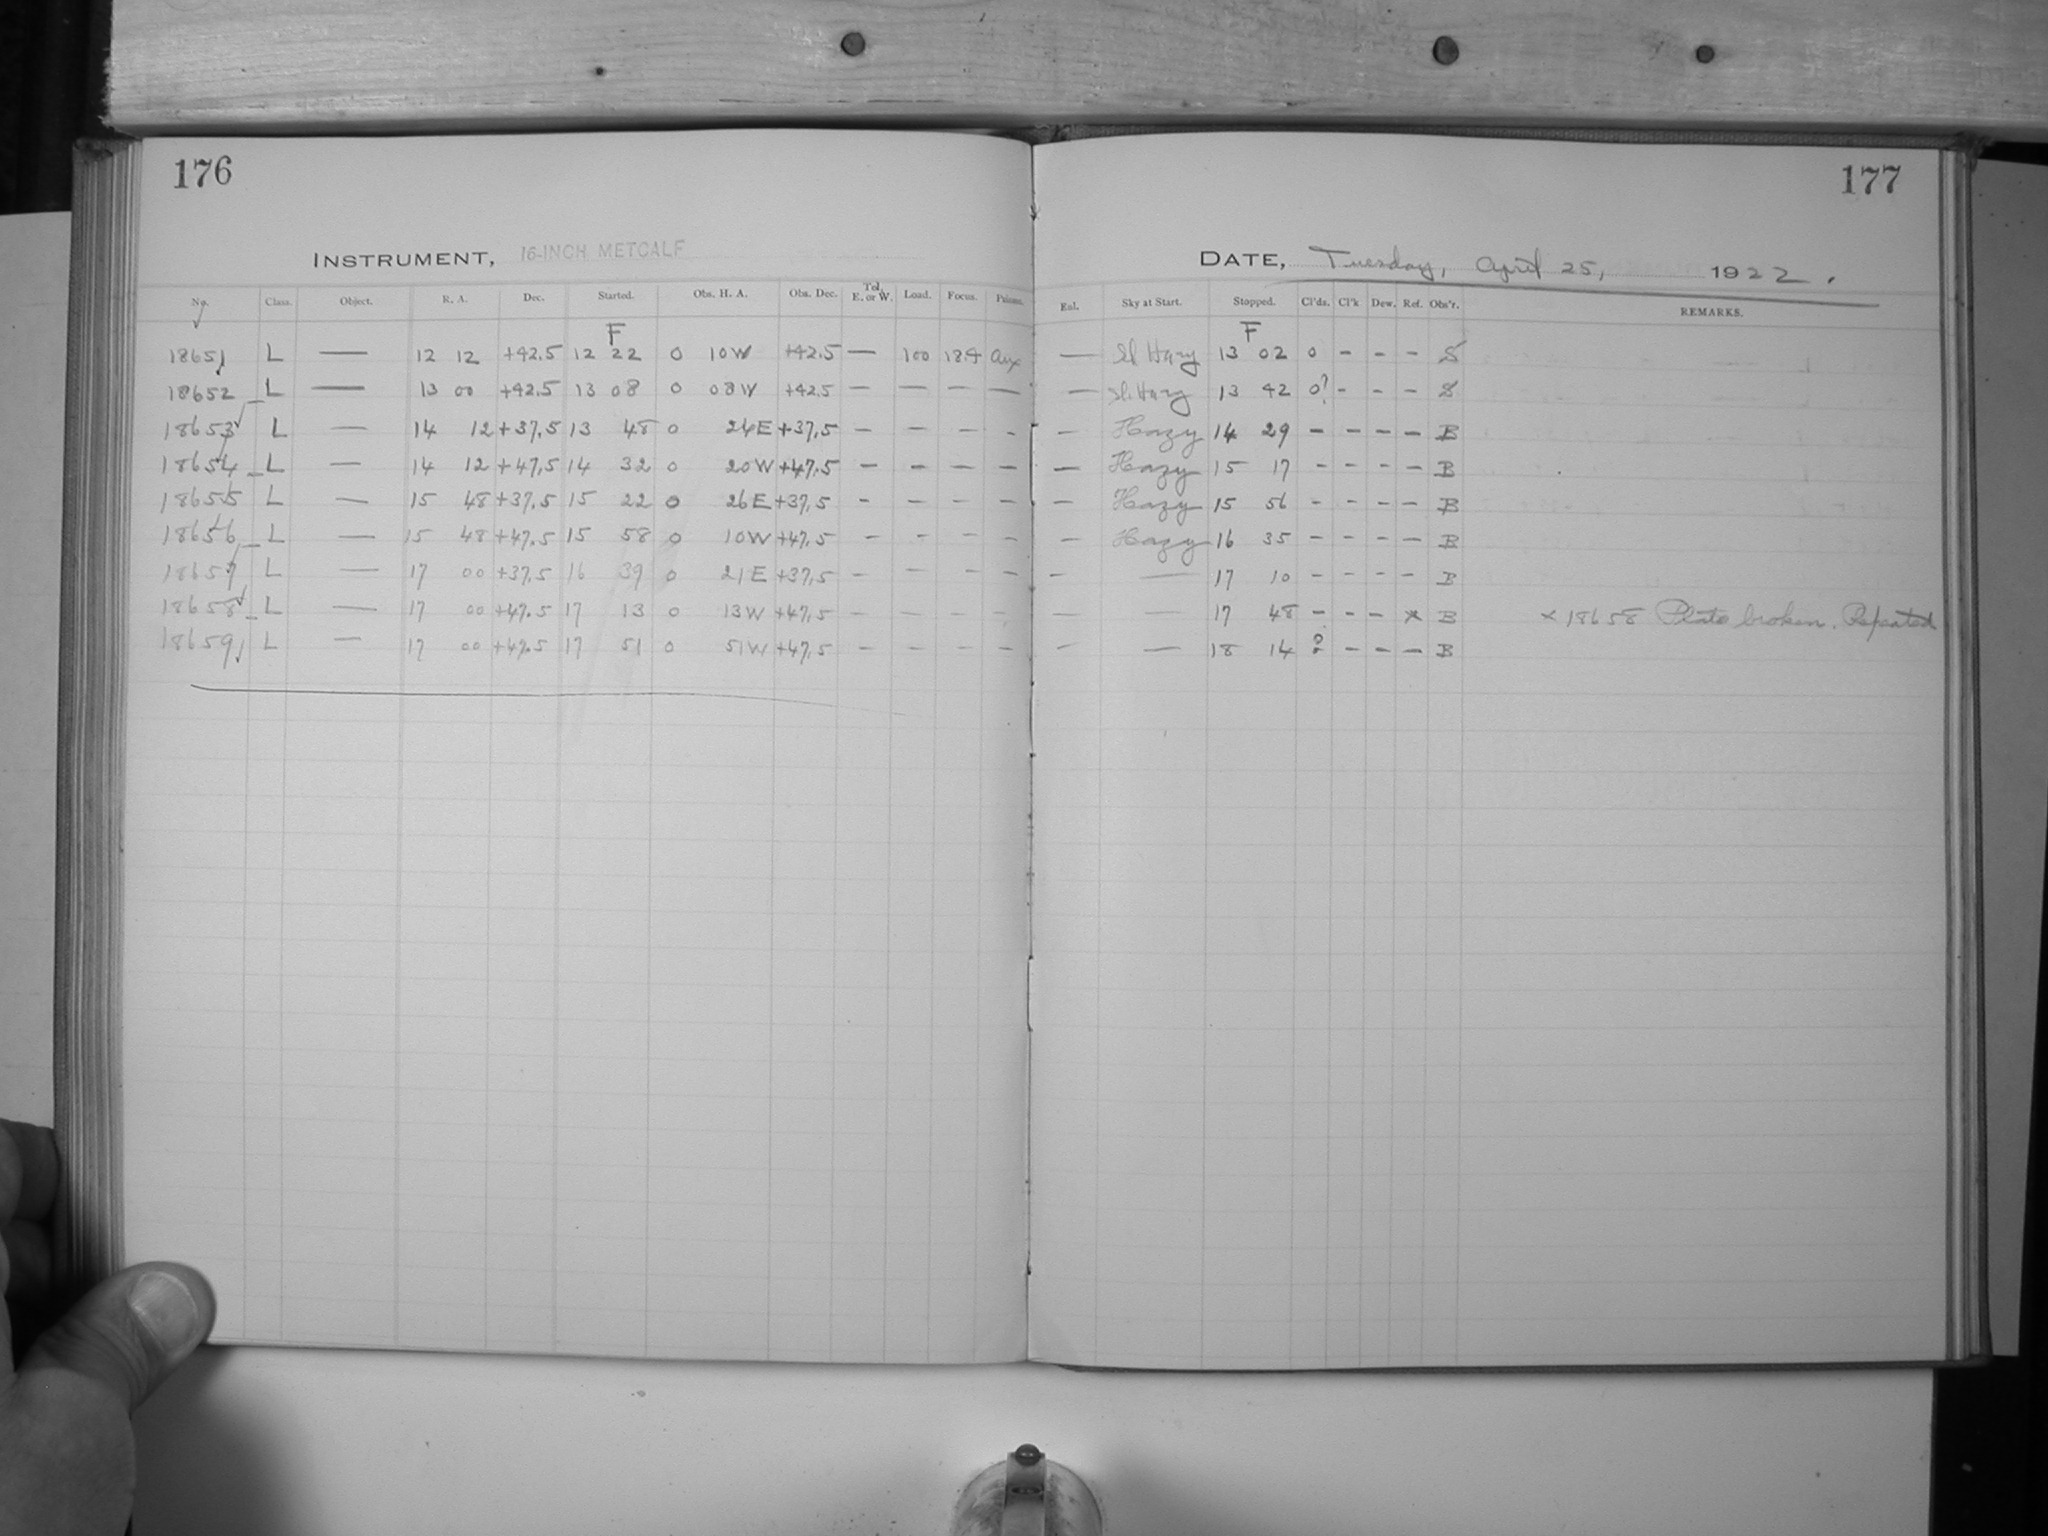 176
177
INSTRUMENT, 16-INCH METCALF
DATE, Tuesday, April 25, 1922.
No. Class. Object. R. A. Dec. Started. Obs. H. A. Obs. Dec. Tel. E. or W. Load. Focus. Enl. Sky at Start. Stopped. Cl'ds. Cl'k Dew. Ref. Obs'r. REMARKS.
F F
18651 L — 12 12 +42.5 12 22 0 10W +42.5 — 100 18.4 Aux — Sl Hazy 13 02 0 - - - S
18652 L — 13 00 +42.5 13 08 0 08W +42.5 — — — — — Sl. Hazy 13 42 0? - - - S
18653 L — 14 12 +37.5 13 48 0 24E +37.5 — — — - — Hazy 14 29 - - - - B
18654 L — 14 12 +47.5 14 32 0 20W +47.5 — — — — — Hazy 15 17 - - - - B
18655 L — 15 48 +37.5 15 22 0 26E +37.5 — — — — — Hazy 15 56 - - - - B
18656 L — 15 48 +47.5 15 58 0 10W +47.5 — — — — — Hazy 16 35 - - - - B
18657 L — 17 00 +37.5 16 39 0 21E +37.5 — — — — — — 17 10 - - - - B
18658 L — 17 00 +47.5 17 13 0 13W +47.5 — — — - — — 17 48 - - - x B x 18658 Plate broken. Repeated
18659 L — 17 00 +47.5 17 51 0 51W +47.5 — — — — — — 18 14 ? - - - B